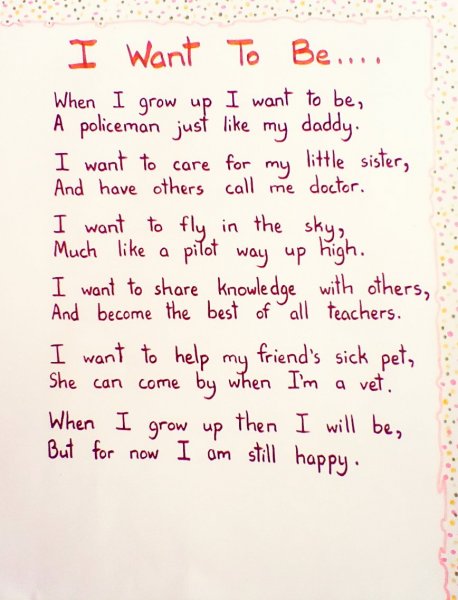 I Want To Be....
When I grow up I want to be,
A policeman just like my daddy.
I want to care for my little sister,
And have others call me doctor.
I want to fly in the sky,
Much like a pilot way up high.
I want to share knowledge with others,
And become the best of all teachers.
I want to help my friend's sick pet,
She can come by when I'm a vet.
When I grow up then I will be,
But for now I am still happy.